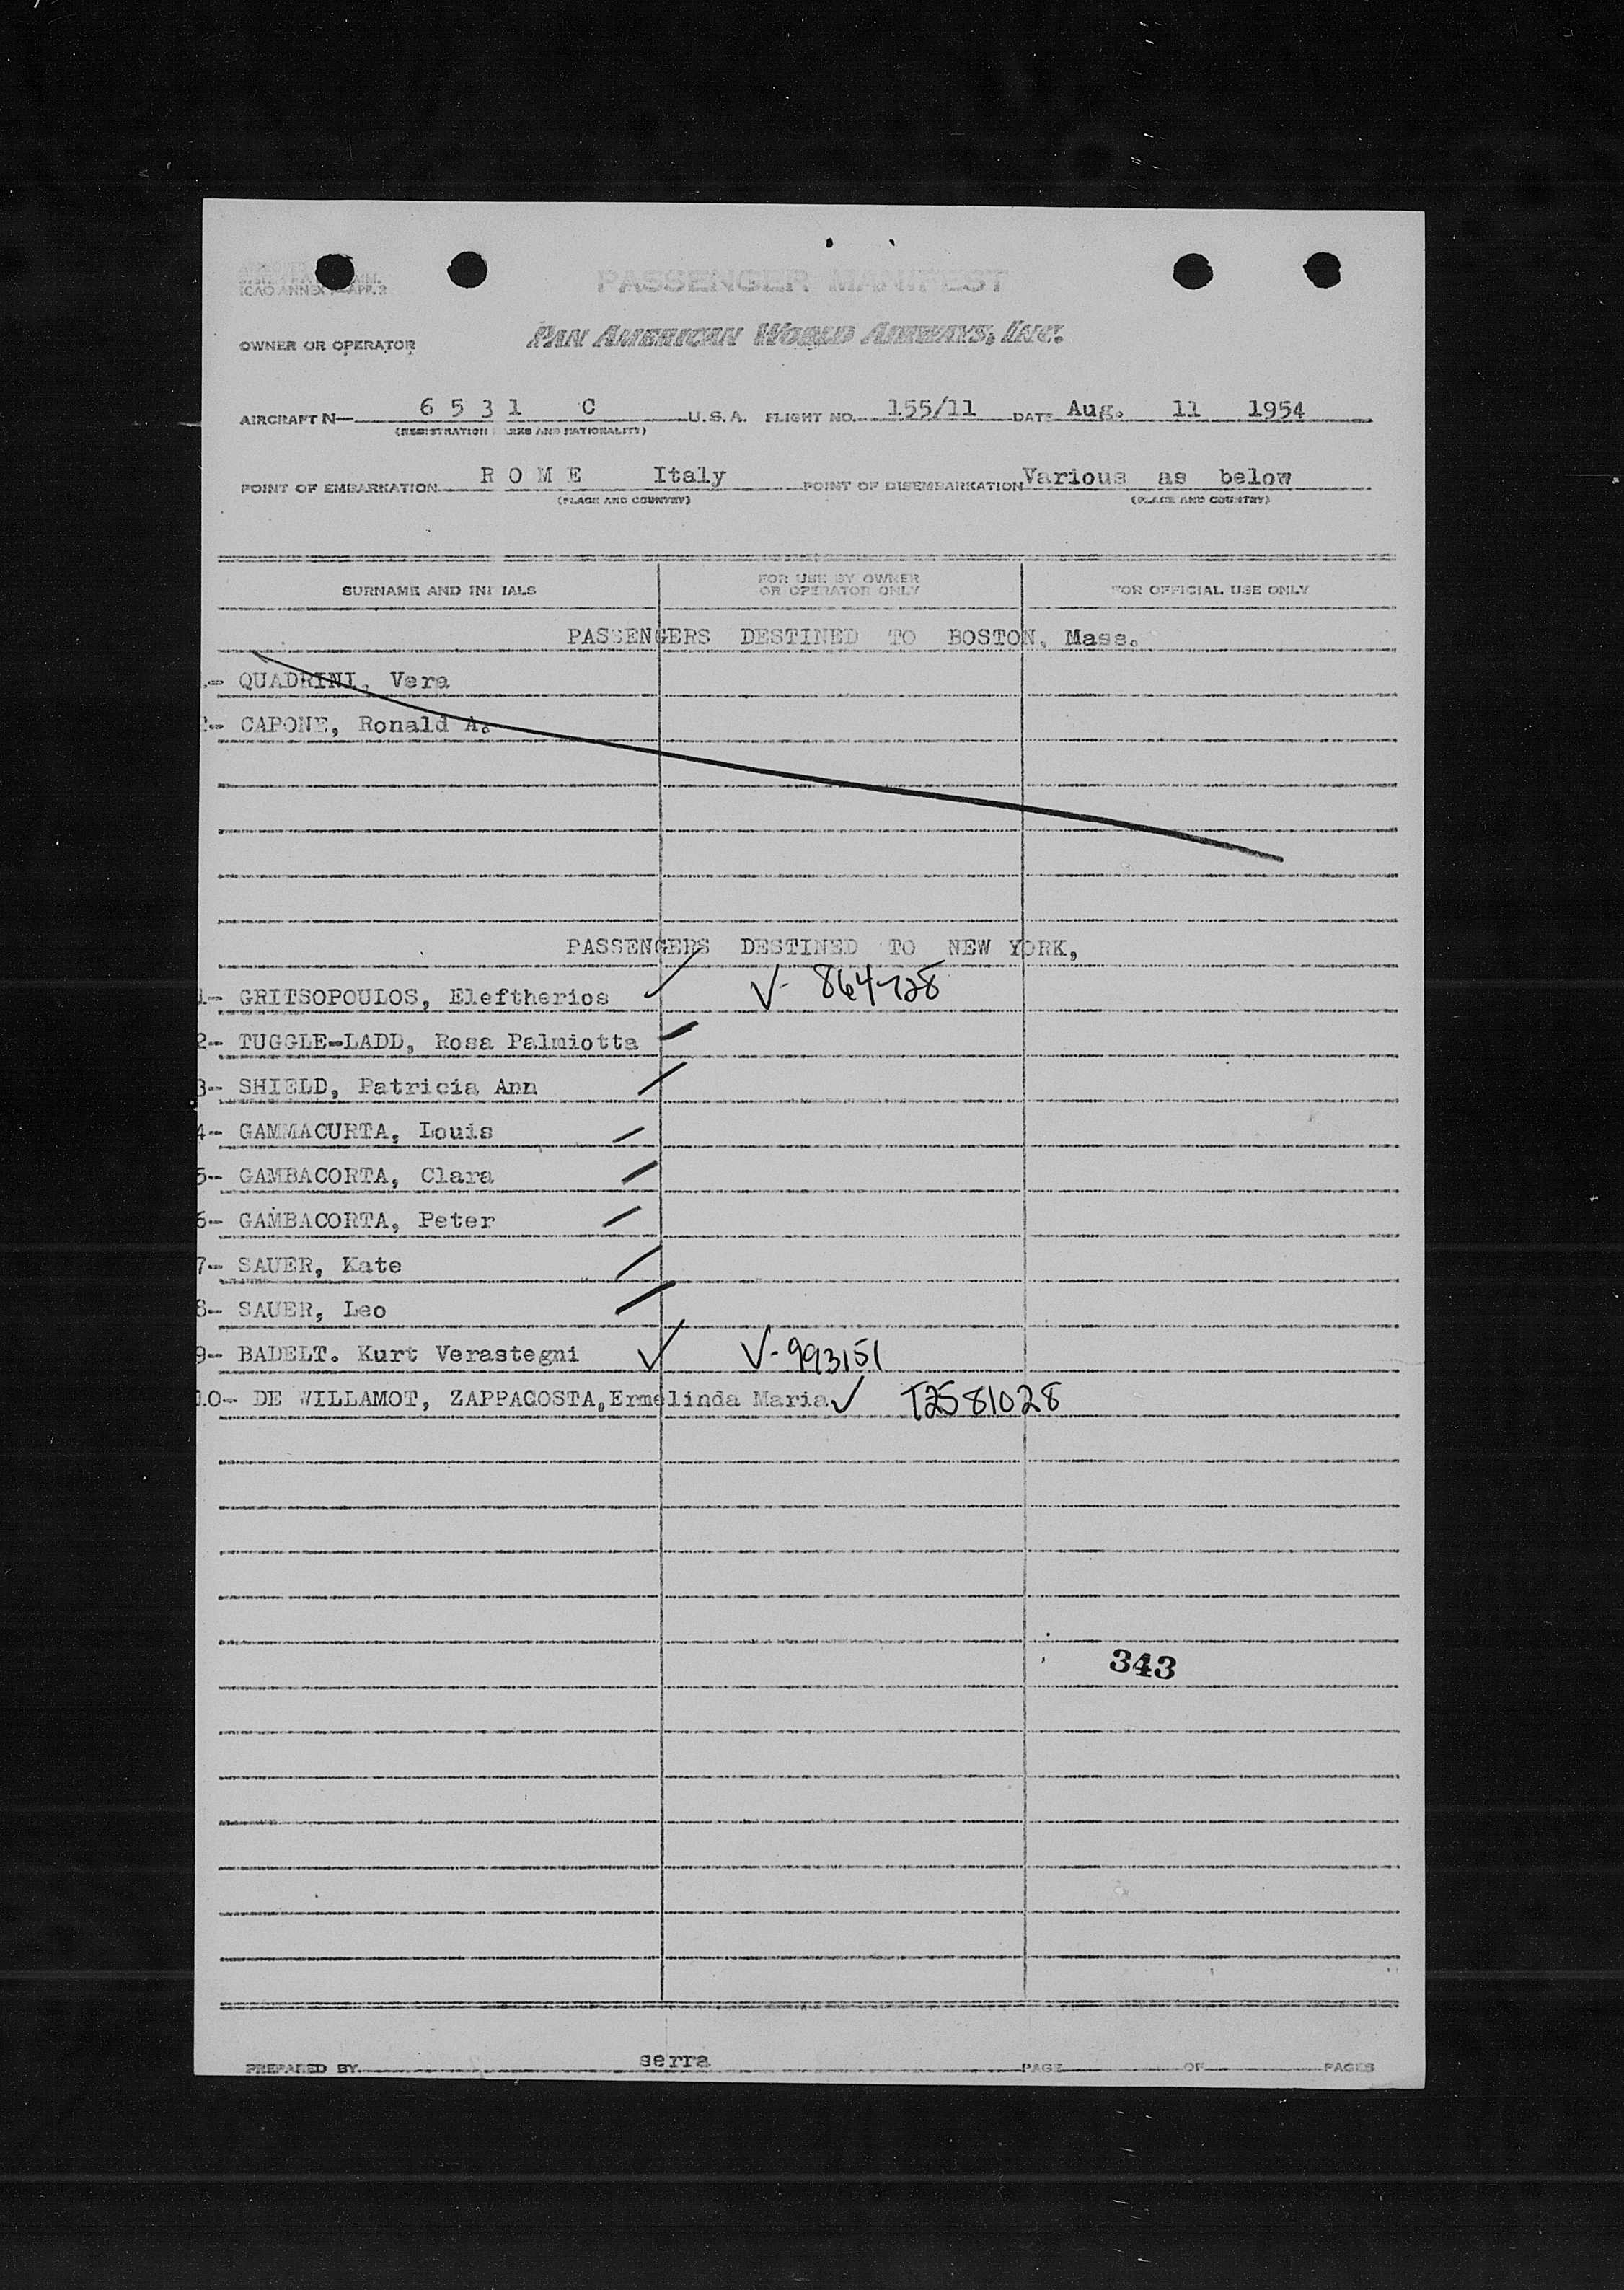 PASSENGER MANIFEST
ICAO ANNEX APP. 2
OWNER OR OPERATOR PAN AMERICAN WORLD AIRWAYS, INC.
AIRCRAFT N— 6 5 3 1 C U.S.A. FLIGHT NO. 155/11 DATE Aug. 11 1954
(REGISTRATION MARKS AND NATIONALITY)
POINT OF EMBARKATION R O M E Italy POINT OF DISEMBARKATION Various as below
(PLACE AND COUNTRY) (PLACE AND COUNTRY)
SURNAME AND INITIALS FOR USE BY OWNER OR OPERATOR ONLY FOR OFFICIAL USE ONLY
PASSENGERS DESTINED TO BOSTON, Mass.
- QUADRINI, Vera
2- CAPONE, Ronald A.
PASSENGERS DESTINED TO NEW YORK,
1- GRITSOPOULOS, Eleftherios V- 864728
2- TUGGLE-LADD, Rosa Palmiotta
3- SHIELD, Patricia Ann
4- GAMMACURTA, Louis
5- GAMBACORTA, Clara
6- GAMBACORTA, Peter
7- SAUER, Kate
8- SAUER, Leo
9- BADELT. Kurt Verastegni V-993151
10- DE WILLAMOT, ZAPPACOSTA, Ermelinda Maria T2581028
343
PREPARED BY serra PAGE OF PAGES